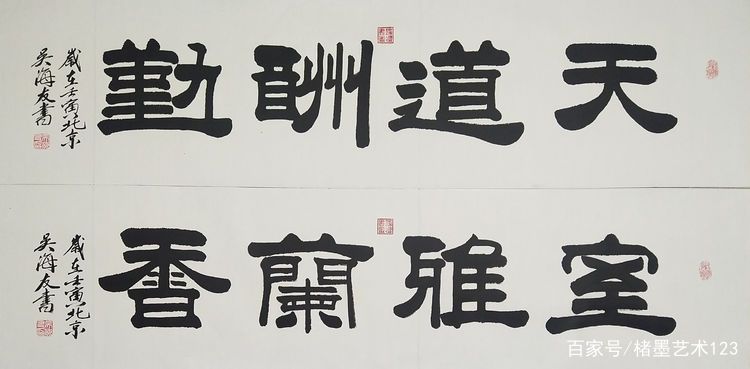 天道酬勤
歲在壬寅北京
吴海友書
室雅蘭香
歲在壬寅北京
吴海友書
百家号/楮墨艺术123